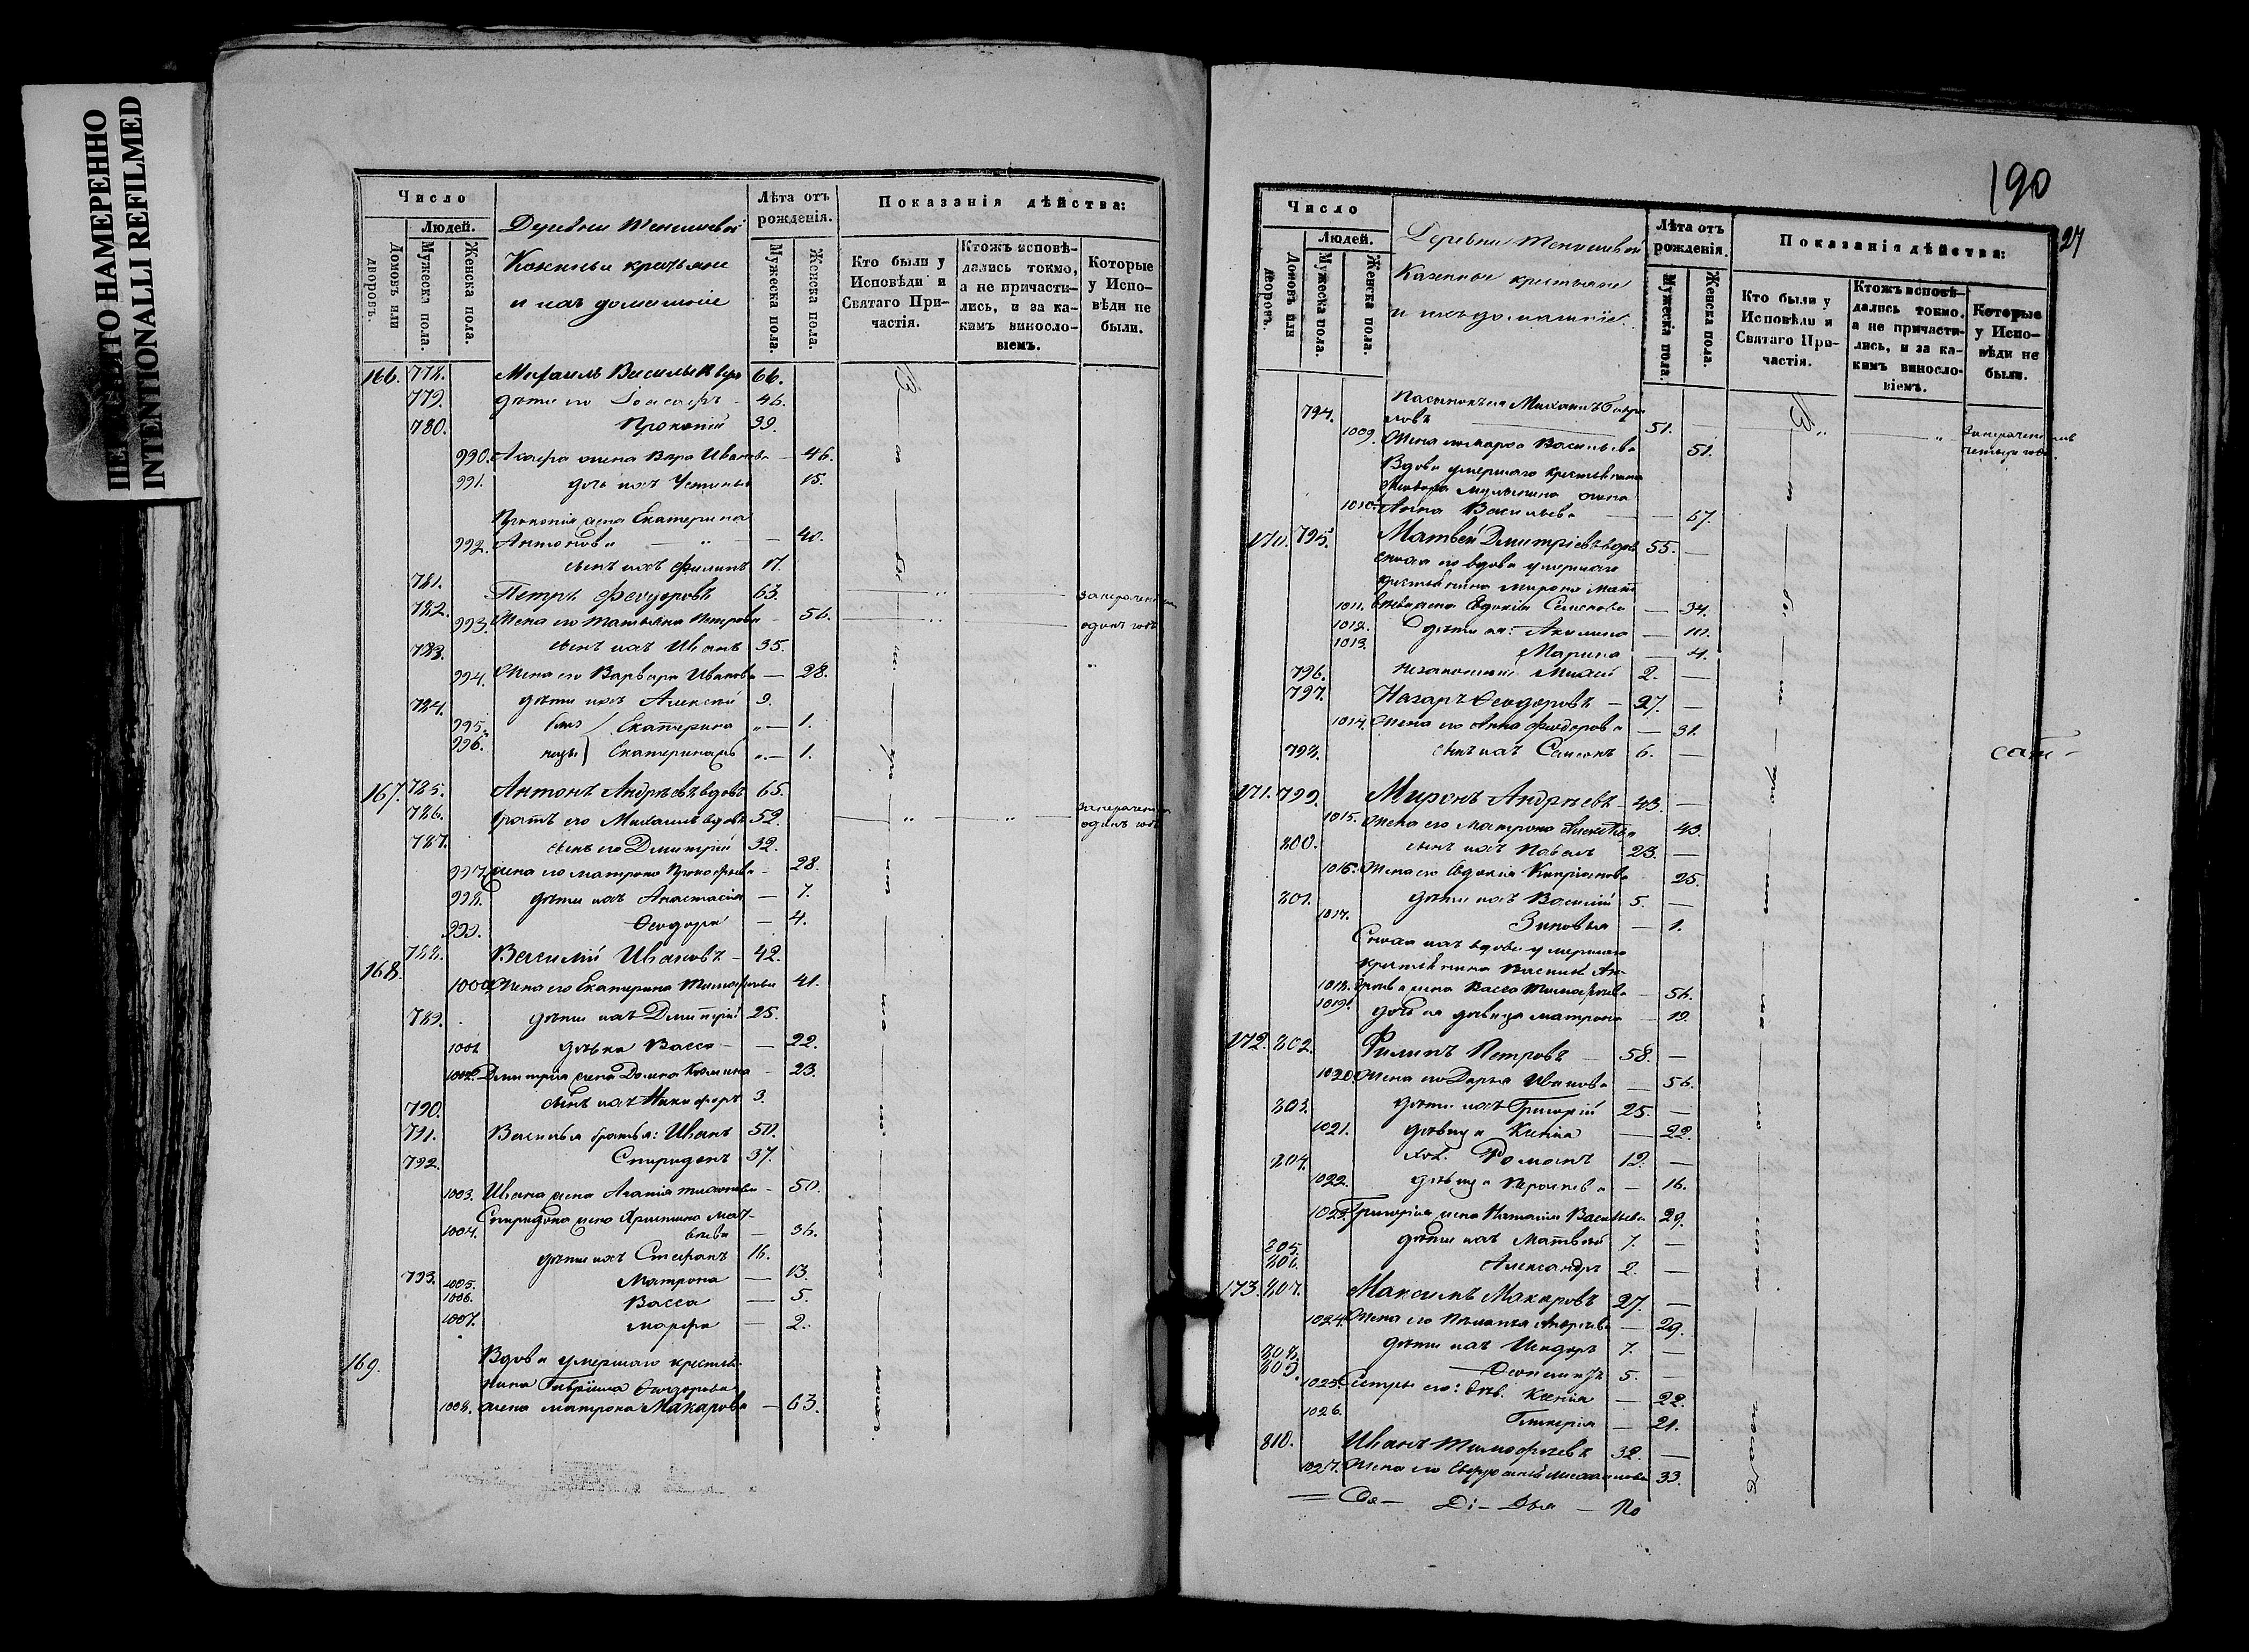 INTENTIONALLI REFILMED
Число
Людей.
Домовъ или дворовъ.
Мужеска пола.
Женска пола.
Деревни
Казенныя
и ихъ домашніе
Лѣта отъ рожденія.
Мужеска пола.
Женска пола.
Показанія дѣйства:
Кто были у Исповѣди и Святаго Причастія.
Ктожъ исповѣдались токмо, а не причастились, и за какимъ винословіемъ.
Которые у Исповѣди не были.
166. 778. Михаилъ 66.
779. дѣти его 46.
780. Прокопій 39.
990. жена Иванова — 46.
991. дочь ихъ 15.
Прокопія жена Екатерина
992. Антонова — 40.
781. сынъ ихъ Филипъ 17.
782. Петръ Феодоровъ 63.
993. Жена его Татьяна Петрова — 56. одинъ годъ
783. сынъ ихъ Иванъ 35.
994. Жена его Варвара Иванова — 28.
784. дѣти ихъ Алексѣй 9.
995. Екатерина — 1.
996. Екатерина — 1.
167. 785. Антонъ Андреевъ вдовъ 65.
786. братъ его Михаилъ вдовъ 52. одинъ годъ
787. сынъ его Дмитрій 32.
997. жена его Матрона Прокофьева — 28.
998. дѣти ихъ Анастасія — 7.
999. Феодора — 4.
168. 788. Василій Ивановъ — 42.
1000. Жена его Екатерина Тимофеева 41.
789. дѣти ихъ Дмитрій 25.
1001. дѣвка Васса — 22.
1002. Дмитрія жена Домна — 23.
790. сынъ ихъ Никифоръ 3.
791. Василья братья: Иванъ 50.
792. Спиридонъ 37.
1003. Ивана жена Агапія — 50.
Спиридона жена Христина Мат-
1004. вѣева — 36.
793. дѣти ихъ Стефанъ 16.
1005. Матрона — 13.
1006. Васса — 5.
1007. Марфа — 2.
169. Вдова умершаго крестья-
нина Гавріила Феодорова
1008. жена Матрона Макарова — 63.
190
24
Число
Людей.
Домовъ или дворовъ.
Мужеска пола.
Женска пола.
Деревни
Казенные крестьяне
и ихъ домашніе
Лѣта отъ рожденія.
Мужеска пола.
Женска пола.
Показанія дѣйства:
Кто были у Исповѣди и Святаго Причастія.
Ктожъ исповѣдались токмо, а не причастились, и за какимъ винословіемъ.
Которые у Исповѣди не были.
Пасынокъ ея Михаилъ Гаври-
794. ловъ 51.
1009. Жена его Марфа Васильева 51.
Вдова умершаго крестьянина
жена
1010. Анна Васильева — 67.
170. 795. Матвей Дмитріевъ вдовъ 55. —
сноха его вдова умершаго
крестьянина Мирона Мат-
1011. вѣева жена Евдокія Семенова — 34.
1012. дѣти ея: Акилина —
1013. Марина — 4.
796. незаконный 2. —
797. Назаръ Феодоровъ — 27. —
1014. Жена его Анна Феодорова — 31.
798. сынъ ихъ Самсонъ 6. —
171. 799. Миронъ Андреевъ — 43. —
1015. Жена его Матрона 43.
800. сынъ ихъ Павелъ 23. —
1016. Жена его Евдокія Кипріянова 25.
801. дѣти ихъ Василій 5. —
1017. Зиновья — 1.
Сноха ихъ вдова умершаго
крестьянина Василія Ан-
1018. дреева жена Васса Тимофеева — 56.
1019. дочь ея дѣвица Матрона — 19.
172. 802. Филипъ Петровъ — 58. —
1020. Жена его Дарья Иванова — 56.
803. дѣти ихъ Григорій 25. —
1021. дѣвица Ксенія — 22.
804. Романъ 12. —
1022. дѣвица — 16.
1023. Григорія жена Наталія Васильева 29.
805. дѣти ихъ Матвѣй 7. —
806. Александръ 2. —
173. 807. Максимъ Макаровъ 27. —
1024. Жена его Андреева — 29.
808. дѣти ихъ Исидоръ 7. —
809. 5. —
1025. Сестры его: дѣв. Ксенія — 22.
1026. Гликерія — 21.
810. Иванъ Тимофеевъ 32. —
1027. Жена его 33.